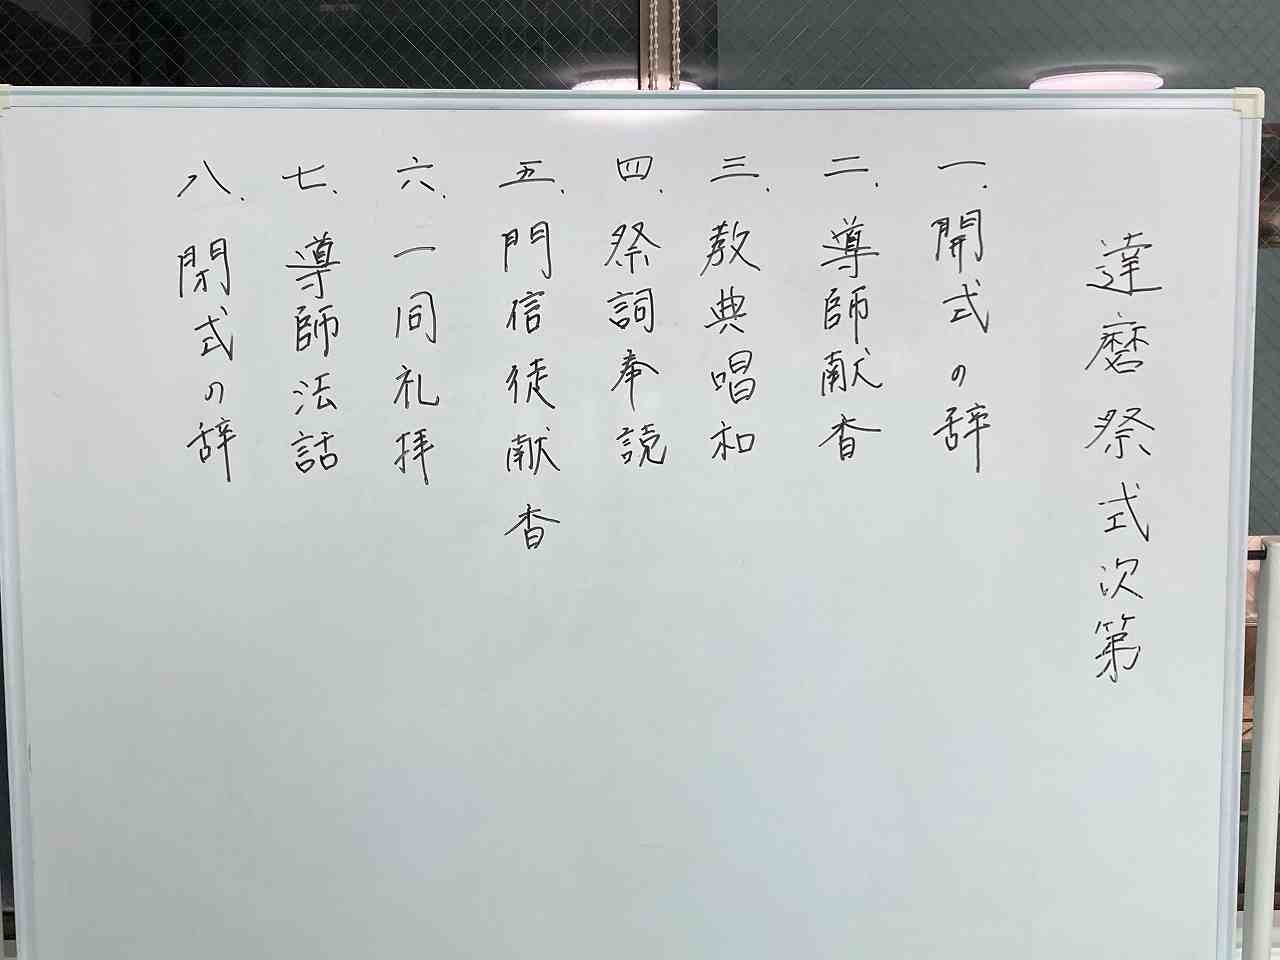 達磨祭式次第
一. 開式の辞
二. 導師献香
三. 教典唱和
四. 祭詞奉読
五. 門信徒献香
六. 一同礼拝
七. 導師法話
八. 閉式の辞